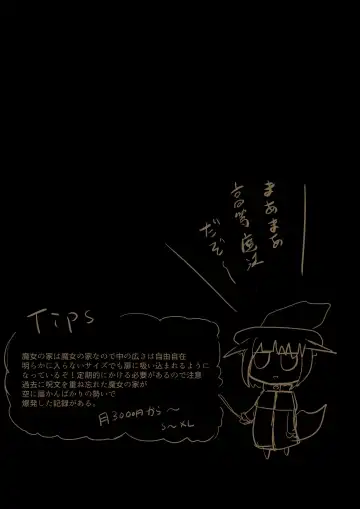 まあまあ
高等魔法
だぞ〜
Tips
魔女の家は魔女の家なので中の広さは自由自在
明らかに入らないサイズでも扉に吸い込まれるように
なっているぞ！定期的にかける必要があるので注意
過去に呪文を重ね忘れた魔女の家が
空に届かんばかりの勢いで
爆発した記録がある。
月3000円から〜
S〜XL